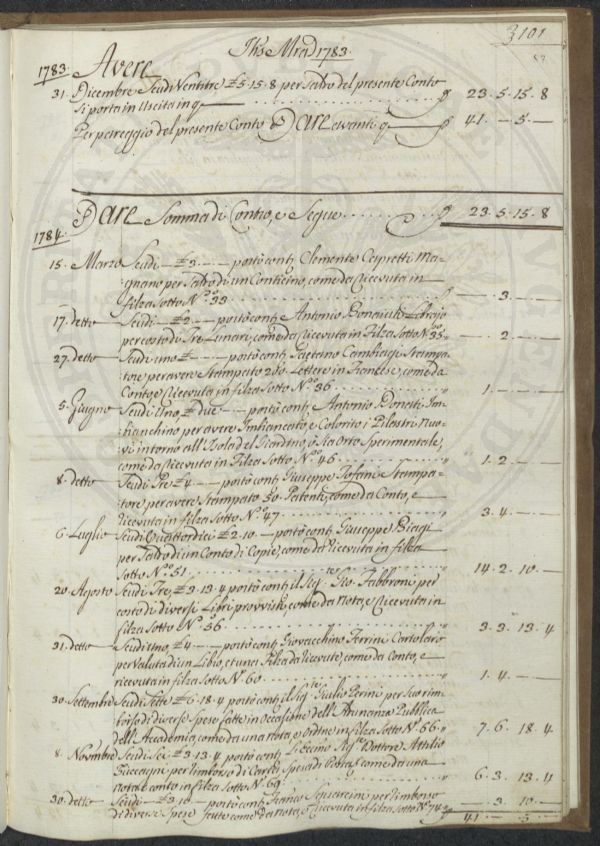 3101
57
Jhs Mra d 1783.
1783. Avere
31. Dicembre Scudi Ventitre £5. 15. 8 per Saldo del presente Conto
Si porta in Uscita in q° 23. 5. 15. 8
Per pareggio del presente Conto Dare avanti q 41. — 5. —
Dare Somma di Contro, e Segue 23. 5. 15. 8
1784.
15. Marzo Scudi — £3. — portò cont. Clemente Capretti Ma-
gnano per Saldo di un Conticino, come da Ricevuta in
filza Sotto N.° 33 — 3. —
17. detto Scudi — £2. — portò cont. Antonio Bonaiuti Libraio
per costo di Tre Lunari, come da Ricevuta in Filza Sotto N.° 35 — 2. —
27. detto Scudi uno £ — portò cont. Gaetano Cambiagi Stampa-
tore per avere Stampato 200. Lettere in Francese, come da
Conto, e Ricevuta in filza Sotto N.° 36 1. —
5. Giugno Scudi Uno, £ due — portò cont. Antonio Donati Im-
bianchino per avere Imbiancato e Colorito i Pilastri Nuo-
vi intorno all' del Giardino, o Sia Orto Sperimentale,
come da Ricevuta in Filza Sotto N.° 46 1. 2. —
8. detto Scudi Tre £4. — portò cont. Giuseppe Tofani Stampa-
tore per avere Stampato 50. Patenti, come da Conto, e
Ricevuta in filza Sotto N.° 47 3. 4. —
6. Luglio Scudi Quattordici £2. 10. — portò cont. Giuseppe Biagi
per Saldo di un Conto di Copie, come da Ricevuta in filza
Sotto N.° 51 14. 2. 10. —
20. Agosto Scudi Tre, £3. 13. 4 portò cont. il Sig.r Gio. Fabbroni per
costo di diversi Libri provvisti, come da Nota, e Ricevuta in
filza Sotto N.° 56 3. 3. 13. 4
31. detto Scudi uno, £4. — portò cont. Giovacchino Ferrini Cartolaro
per Valuta di un Libro, et una Filza da Ricevute, come da Conto, e
ricevuta in filza Sotto N.° 60 1. 4. —
30. Settembre Scudi Sette £6. 18. 4 portò cont. il Sig.re Giulio Perini per Suo rim-
borso di diverse Spese fatte in Occasione dell' Adunanza Pubblica
dell' Accademia, come da una nota, e Ordine in filza Sotto N.° 66 7. 6. 18. 4
8. Novmbre Scudi Sei £3. 13. 4 portò cont. Sig.re Dottore Attilio
Zuccagni per rimborso di Spese di Posta come da una
nota, e conto in filza Sotto N.° 69 6. 3. 13. 4
30. detto Scudi — £3. 10. — portò cont. Franco per rimborso
di diverse Spese fatte come da nota, e Ricevuta in filza Sotto N.° 74 — 3. 10. —
41. — 5. —